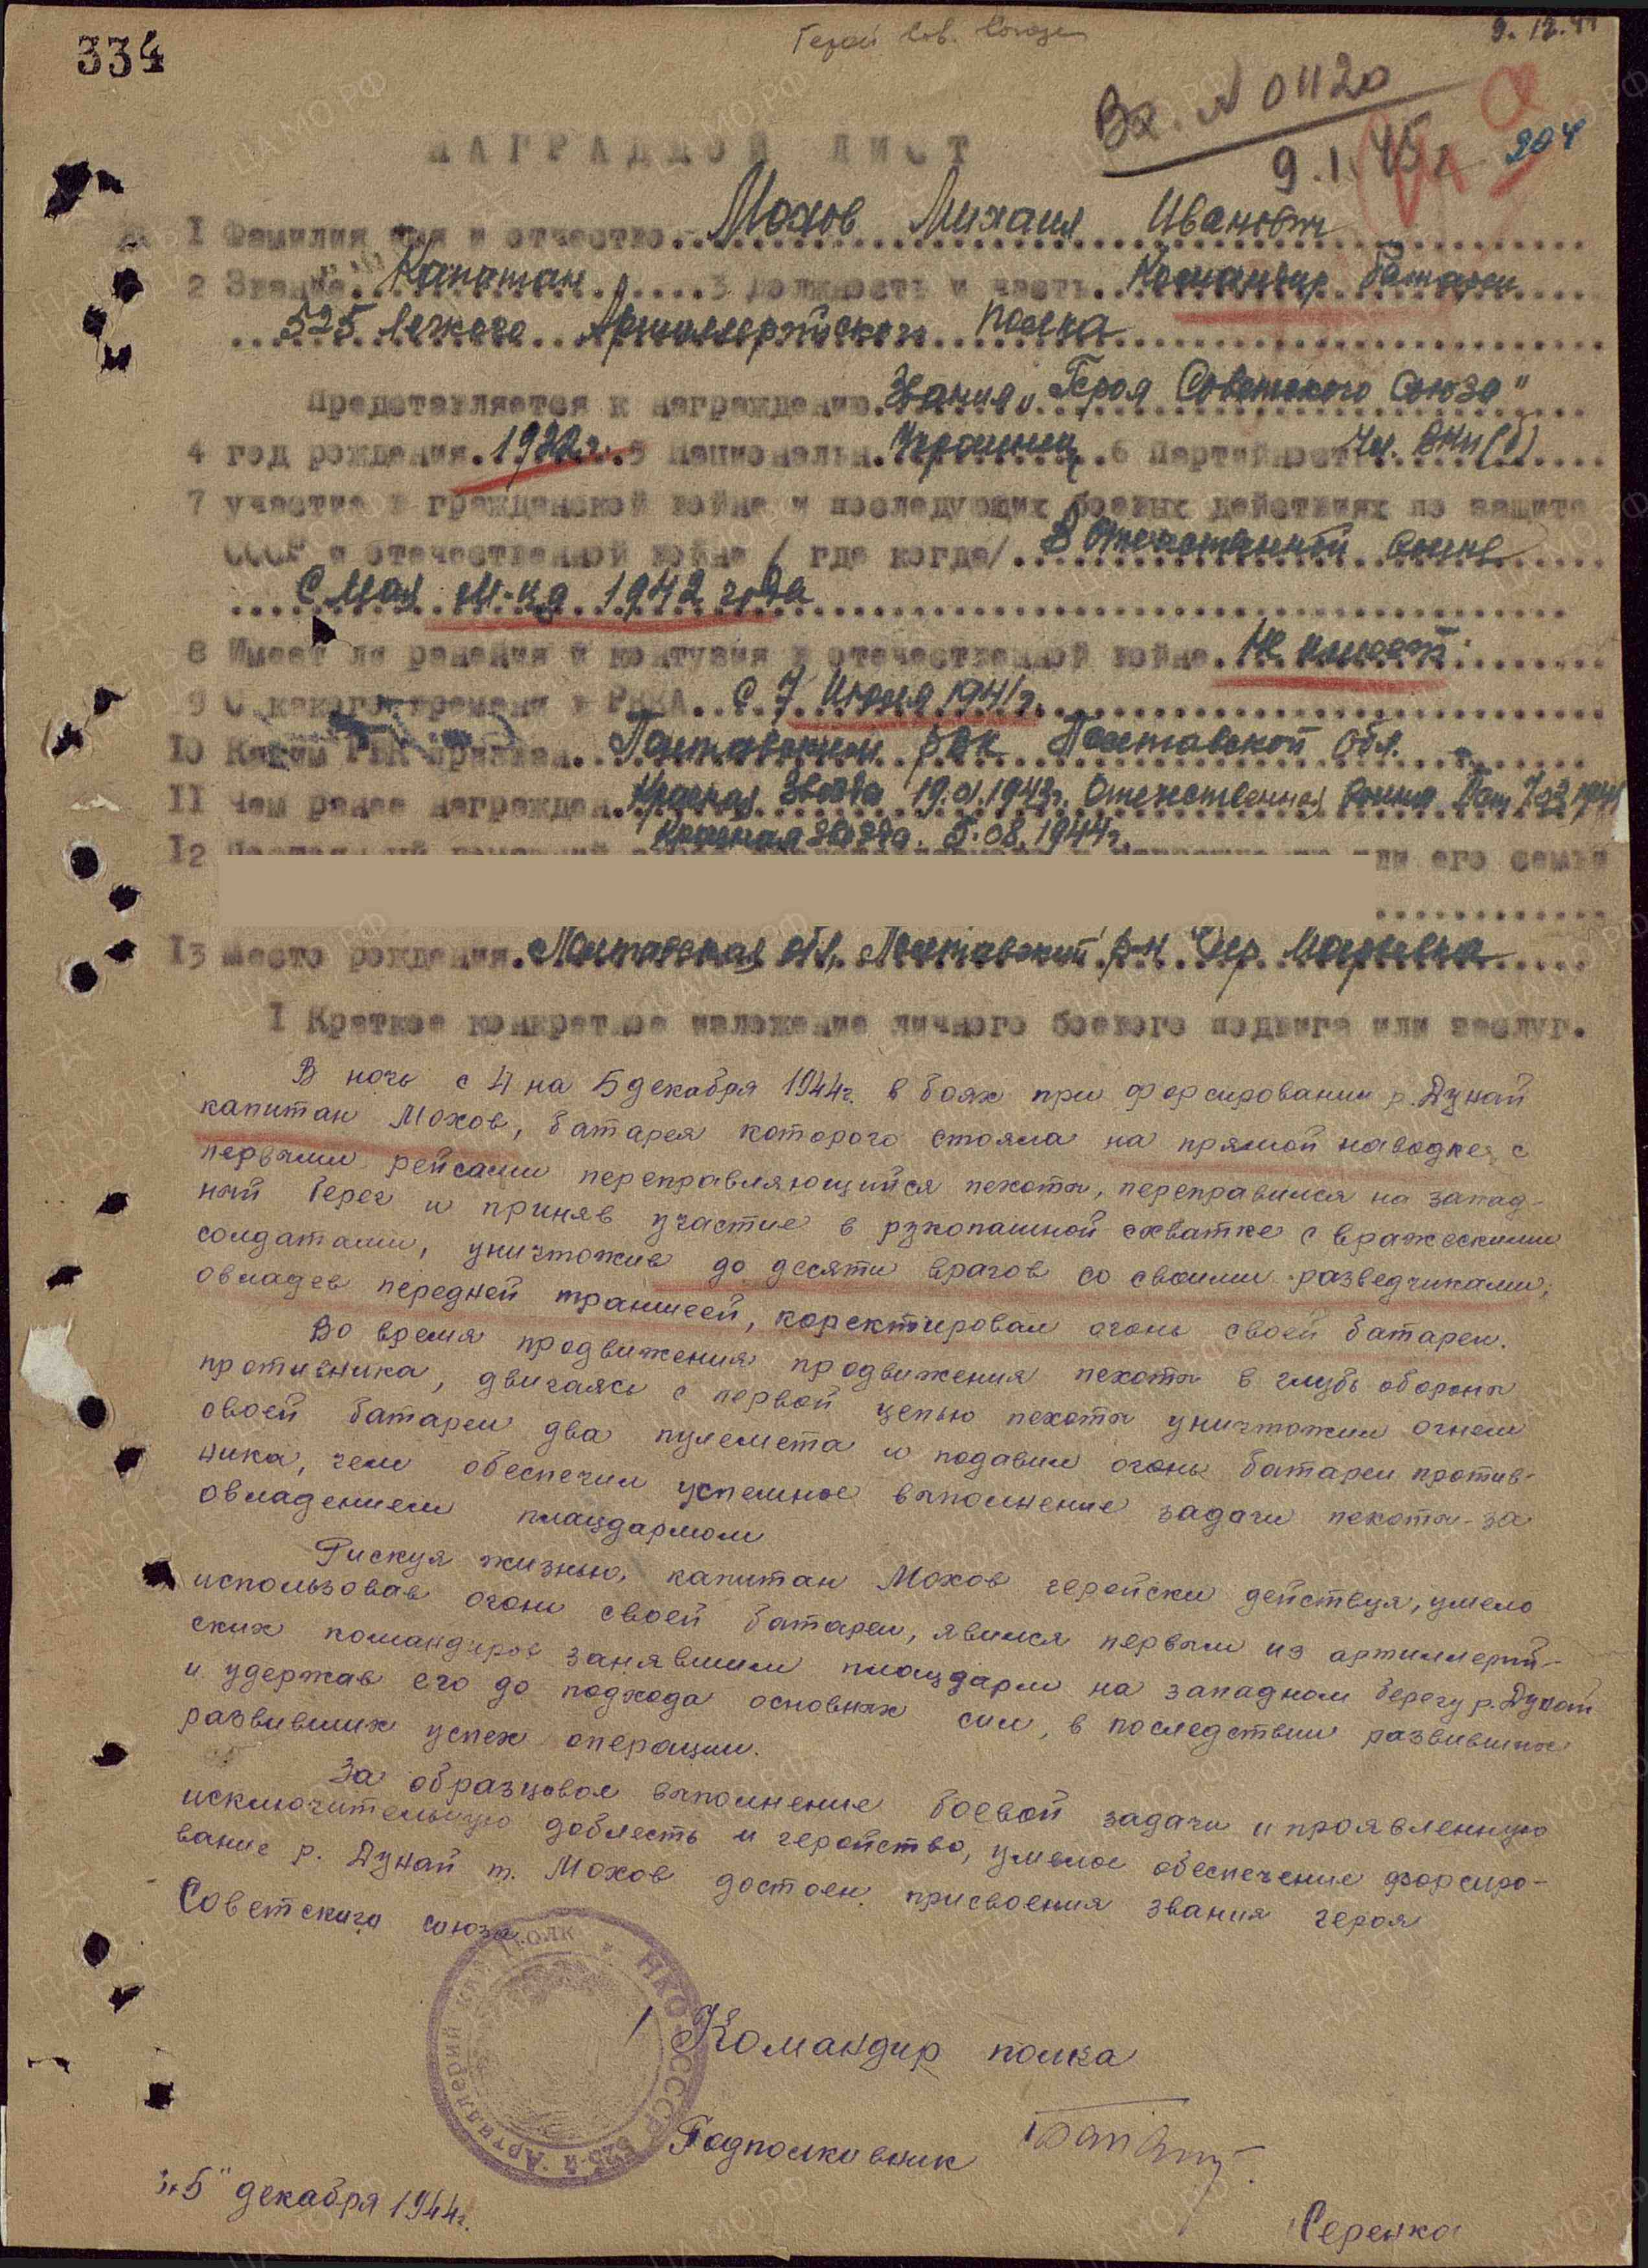 334
Герой Сов. Союза
9.12.44
Вх. № 01120
9.1.45г
204
НАГРАДНОЙ ЛИСТ
I Фамилия имя и отчество Мохов Михаил Иванович
2 Звание Капитан 3 Должность и часть Командир батареи
525 легкого Артиллерийского полка
Представляется к награждению Звания „Героя Советского Союза"
4 год рождения 1922г. 5 Национальн. Украинец 6 Партийность Чл. ВКП(б)
7 участие в гражданской войне и последующих боевых действиях по защите
СССР и отечественной войне / где когда/ В Отечественной войне
с Мая м-ца 1942 года
8 Имеет ли ранения и контузия в отечественной войне Не имеет
9 С какого времени в РККА с 7 Июня 1941г.
10 Каким РВК призван Полтавским РВК Полтавской обл.
11 Чем ранее награжден Красная Звезда 19.01.1943г. Отечественная Война
Красная Звезда 5.08.1944г.
12 или его семьи
13 Место рождения Полтавская обл, Полтавский р-н дер.
I Краткое конкретное изложение личного боевого подвига или заслуг.
В ночь с 4 на 5 декабря 1944г. в боях при форсировании р. Дунай
капитан Мохов, батарея которого стояла на прямой наводке, с
первыми рейсами переправляющийся пехоты, переправился на запад-
ный берег и приняв участие в рукопашной схватке с вражескими
солдатами, уничтожив до десяти врагов со своими разведчиками,
овладев передней траншеей, коректировал огонь своей батареи.
Во время продвижения продвижения пехоты в глубь обороны
противника, двигаясь с первой цепью пехоты уничтожил огнем
своей батареи два пулемета и подавил огонь батареи против-
ника, чем обеспечил успешное выполнение задачи пехоты - за
овладением плацдармом
Рискуя жизнью, капитан Мохов геройски действуя, умело
использовав огонь своей батареи, явился первым из артиллерий-
ских командиров занявшим плацдарм на западном берегу р. Дунай
и удержав его до подхода основных сил, в последствии развивших
развивших успех операции.
За образцовое выполнение боевой задачи и проявленную
исключительную доблесть и геройство, умелое обеспечение форсиро-
вание р. Дунай т. Мохов достоен присвоения звания героя
Советского союза.
НКО СССР 525-й Артиллерийский Полк
Командир полка
Подполковник
Серенко
„5" декабря 1944г.